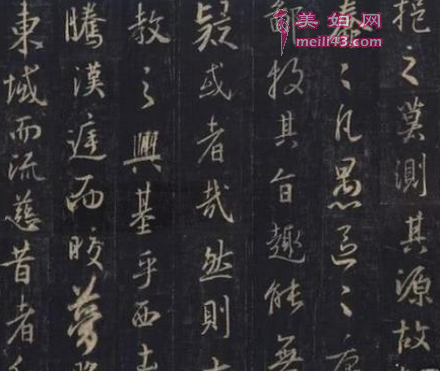 挹之莫測其源故
蠢々凡愚區々庸
鄙投其旨趣能無
疑或者哉然則大
教之興基乎西土
騰漢庭而皎夢照
東域而流慈昔者
美妇网
meili43.com